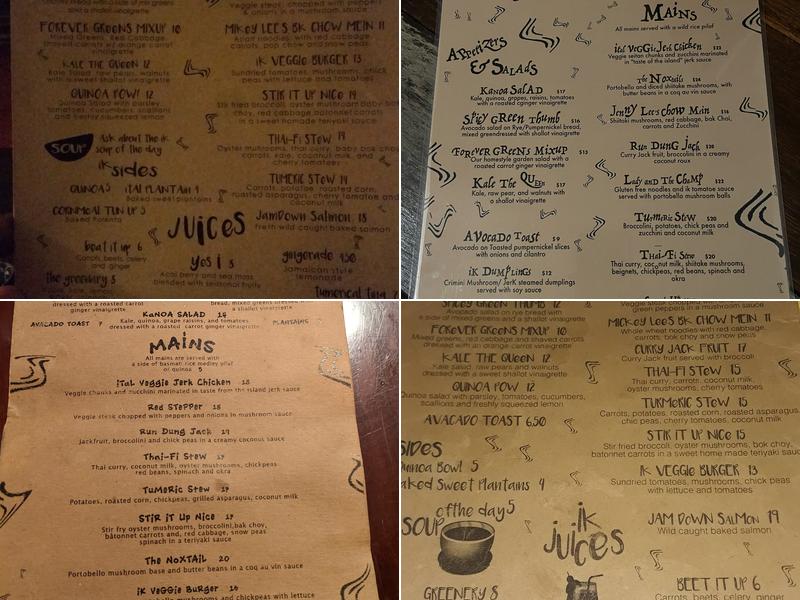 side a mixed greens dressed in a shallot vinaigrette
FOREVER GREENS MIXUP 10
Mixed greens, Red Cabbage,
shaved carrots w/ orange carrot
vinaigrette
KALE THE QUEEN 12
Kale Salad raw, pears, walnuts
with a sweet shallot vinaigrette
QUINOA POW! 12
Quinoa Salad with parsley,
tomatoes, cucumbers, scallions
and freshly squeezed lemon
SOUP
ask about the ik
soup of the day
ik sides
QUINOA 5
ITAL PLANTAIN 4
Baked sweet plantains
CORNMEAL TUN UP 5
Baked Polenta
beat it up 6
Carrots, beets, celery
and ginger
the greenery 8
JUICES
yes i 8
Acai berry and sea moss
blended with seasonal fruit
Veggie steak, chopped with peppers
& onions in a mushroom sauce
MIKEY LEE'S BK CHOW MEIN 11
wheat noodles, with red cabbage,
carrots, bok choy and snow peas
IK VEGGIE BURGER 13
Sundried tomatoes, mushrooms, chick
peas with lettuce and tomatoes
STIR IT UP NICE 14
Stir fried broccoli, oyster mushroom baby bok
choy, red cabbage batonnet carrots
in a sweet homemade teriyaki sauce
THAI-FI STEW 14
Oyster mushrooms, thai curry, baby bok choy
carrots, kale, coconut milk, and
cherry tomatoes
TUMERIC STEW 14
Carrots, potatoes, roasted corn,
roasted asparagus, cherry tomatoes, and
coconut milk
JamDown Salmon 18
fresh wild caught baked salmon
gingerade 4.50
Jamaican style
lemonade
Appetizers
& Salads
Kanoa Salad $17
Kale, quinoa, grapes, raisins, tomatoes
with a roasted ginger vinaigrette
Spicy Green Thumb $16
Avocado salad on Rye/Pumpernickel bread,
mixed greens dressed with a shallot vinaigrette
Forever Greens Mixup $15
Our homestyle garden salad with a
roasted carrot ginger vinaigrette
Kale The Queen $17
Kale, raw pear, and walnuts with
a shallot vinaigrette
Avocado Toast $9
Avocado on Toasted pumpernickel slices
with onions and cilantro
ik Dumplings $12
Crimini Mushroom/ Jerk steamed dumplings
served with soy sauce
Mains
All mains served with a wild rice pilaf
ital Veggie Jerk Chicken $22
Veggie seitan chunks and zucchini marinated
in "taste of the island" jerk sauce
The Noxtails $24
Portobello and diced shiitake mushrooms, with
butter beans in a coq au vin sauce
Jenny Lee's chow Main $16
Shiitaki mushrooms, red cabbage, bak Choi,
carrots and Zucchini
Run Dung Jack $20
Curry Jack fruit, broccolini in a creamy
coconut roux
Lady And The Champ $22
Gluten free noodles and ik tomatoe sauce
served with portobello mushroom balls
Turmeric Stew $20
Broccolini, potatoes, chick peas and
zucchini and coconut milk
Thai-Fi Stew $20
Thai curry, coc,nut milk, shitake mushrooms,
beignets, chickpeas, red beans, spinach and
okra
dressed with a roasted carrot
ginger vinaigrette
bread, mixed greens dressed with
a shallot vinaigrette
KANOA SALAD 14
Kale, quinoa, grape raisins, and tomatoes
dressed with a roasted carrot ginger vinaigrette
AVACADO TOAST 7
PLANTAINS
MAINS
All mains are served with
a side of basmati rice medley pilaf
or quinoa 5
ital Veggie Jerk Chicken 18
Veggie Chunks and zucchini marinated in taste from the island jerk sauce
Red Stepper 18
Veggie steak chopped with peppers and onions in mushroom sauce
Run Dung Jack 17
Jackfruit, broccolini and chick peas in a creamy coconut sauce
Thai-Fi Stew 17
Thai curry, coconut milk, oyster mushrooms, chickpeas
red beans, spinach and okra
Tumeric Stew 17
Potatoes, roasted corn, chickpeas, grilled asparagus, coconut milk
Stir it Up Nice 17
Stir fry oyster mushrooms, broccolini,bak choy,
bâtonnet carrots and, red cabbage, snow peas
spinach in a teriyaki sauce
The NOXTAIL 20
Portobello mushroom base and butter beans in a coq au vin sauce
ik Veggie Burger 16
Sundried tomatoes, mushrooms, and chickpeas with lettuce and
Avocado salad on rye bread w/
a side of mixed greens and a shallot vinaigrette
FOREVER GREENS MIXUP 10
Mixed greens, red cabbage and shaved carrots
dressed with an orange carrot vinaigrette
KALE THE QUEEN 12
Kale salad, raw pears and walnuts
dressed with a sweet shallot vinaigrette
QUINOA POW 12
Quinoa salad with parsley, tomatoes, cucumbers,
scallions and freshly squeezed lemon
AVACADO TOAST 6.50
SIDES
Quinoa Bowl 5
Baked Sweet Plantains 4
SOUP of the day 5
GREENERY 8
ik
juices
Veggie steak chopped with onions and
green peppers in a mushroom sauce
MICKEY LEE'S BK CHOW MEIN 11
Whole wheat noodles with red cabbage,
carrots, bok choy and snow peas
CURRY JACK FRUIT 17
Curry Jack fruit served with broccoli
THAI-FI STEW 15
Thai curry, carrots, coconut milk,
oyster mushrooms, cherry tomatoes
TURMERIC STEW 15
Carrots, potatoes, roasted corn, roasted asparagus,
chic peas, cherry tomatoes, coconut milk
STIR IT UP NICE 15
Stir fried broccoli, oyster mushrooms, bok choy,
batonnet carrots in a sweet home made teriyaki sauce
IK VEGGIE BURGER 13
Sundried tomatoes, mushrooms, chick peas
with lettuce and tomatoes
JAM DOWN SALMON 19
Wild caught baked salmon
BEET IT UP 6
Carrots, beets, celery, ginger